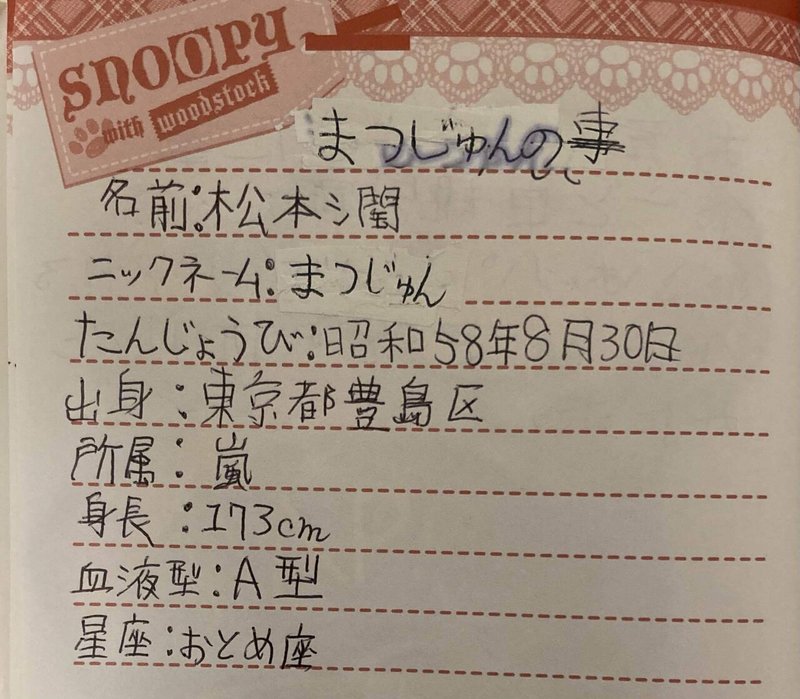 SNOOPY
with woodstock
まつじゅんの事
名前:松本シ閏
ニックネーム:まつじゅん
たんじょうび:昭和58年8月30日
出身:東京都豊島区
所属:嵐
身長:173cm
血液型:A型
星座:おとめ座